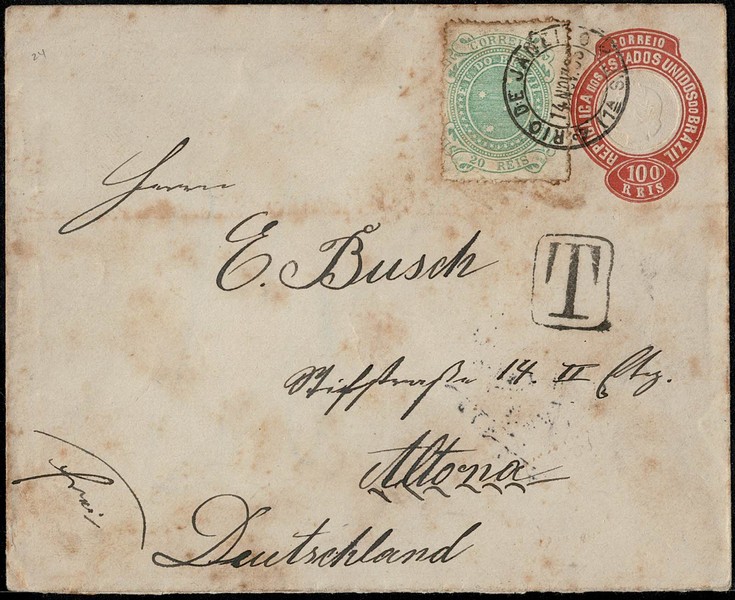 24
CORREIO
E. U. DO BRAZIL
20 REIS
RIO DE JANEIRO
14 NOV
1ª S
CORREIO
REPUBLICA DOS ESTADOS UNIDOS DO BRAZIL
100
REIS
Herrn
E. Busch
T
14. II Etg.
Altona
Deutschland